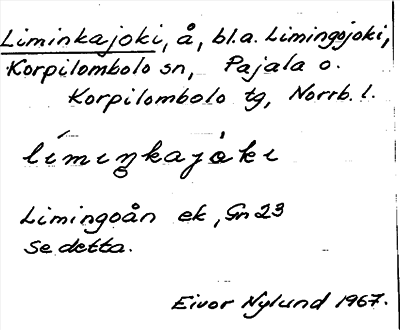 Liminkajoki, å, bl.a. Limingojoki,
Korpilombolo sn, Pajala o.
Korpilombolo tg, Norrb. l.
líminkajòki
Limingoån ek, Gn 23
Se detta.
Eivor Nylund 1967.